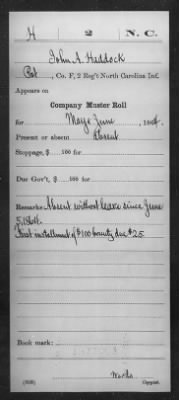 H 2 N.C.
John A. Haddock
Pvt, Co. F, 2 Reg't North Carolina Inf.
Appears on
Company Muster Roll
for May & June, 1864.
Present or absent Absent
Stoppage, $ 100 for
Due Gov't, $ 100 for
Remarks: Absent without leave since June
5, 1864.
First installment of $100 bounty due $25.
Book mark:
Copyist.